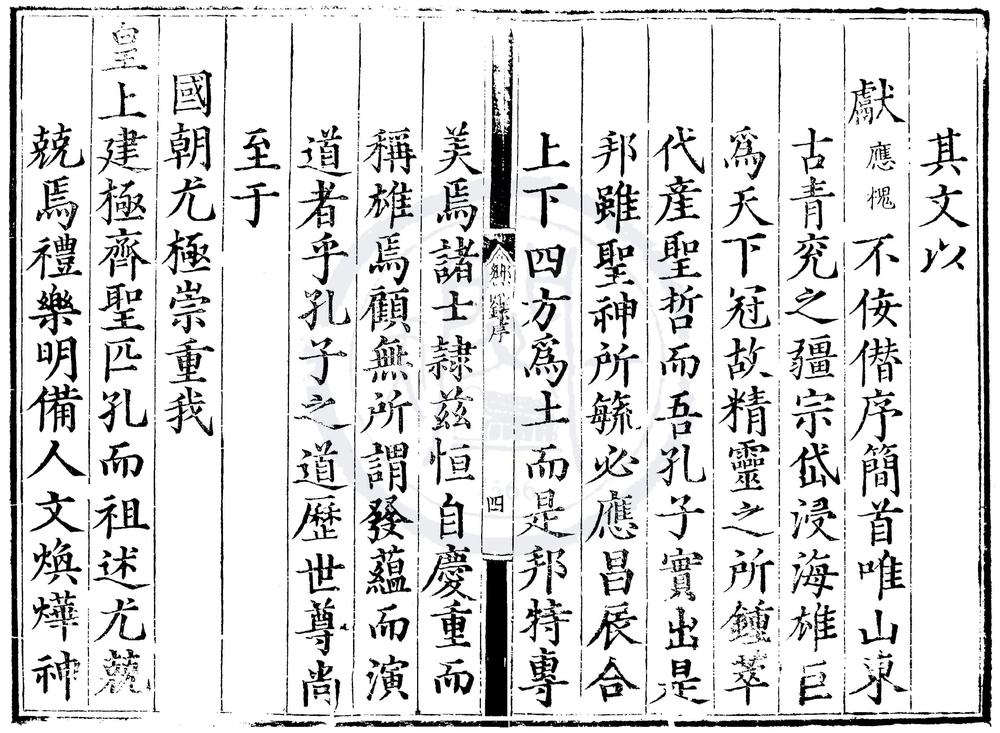 其文以
獻應槐不佞僭序簡首唯山東
古青兖之疆宗岱浸海雄巨
爲天下冠故精靈之所鍾萃
代產聖哲而吾孔子實出是
邦雖聖神所毓必應昌辰合
上下四方爲土而是邦特專
鄉錄序
四
美焉諸士隷茲恒自慶重而
稱雄焉顧無所謂發蘊而演
道者乎孔子之道歷世尊尚
至于
國朝尤極崇重我
皇上建極齊聖匹孔而祖述尤兢
兢焉禮樂明備人文煥燁神